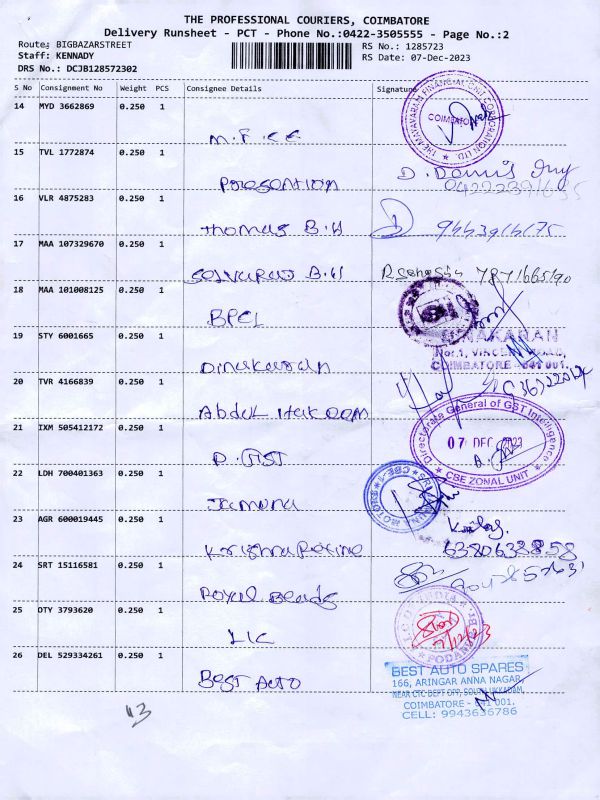 THE PROFESSIONAL COURIERS, COIMBATORE
Delivery Runsheet - PCT - Phone No.:0422-3505555 - Page No.:2
Route: BIGBAZARSTREET RS No.: 1285723
Staff: KENNADY RS Date: 07-Dec-2023
DRS No.: DCJB128572302
S No Consignment No Weight PCS Consignee Details Signature
14 MYD 3662869 0.250 1
COIMBATORE
15 TVL 1772874 0.250 1
D. Dennis
16 VLR 4875283 0.250 1
Thomas B.H
17 MAA 107329670 0.250 1
Selvaraj B.H
18 MAA 101008125 0.250 1
BPCL
19 STY 6001665 0.250 1
COIMBATORE - 641 001.
Dinakaran
20 TVR 4166839 0.250 1
Abdul Hakeem
Directorate General of GST Intelligence
21 IXM 505412172 0.250 1
07 DEC 2023
D.GST
CBE ZONAL UNIT
22 LDH 700401363 0.250 1
Jamuna
23 AGR 600019445 0.250 1
6380638858
24 SRT 15116581 0.250 1
Royal Beads
25 OTY 3793620 0.250 1
LIC
7/12/23
26 DEL 529334261 0.250 1
Best Auto
BEST AUTO SPARES
166, ARINGAR ANNA NAGAR,
NEAR CTC DEPT OPP, SOUTH UKKADAM,
COIMBATORE - 641 001.
CELL: 9943636786
13